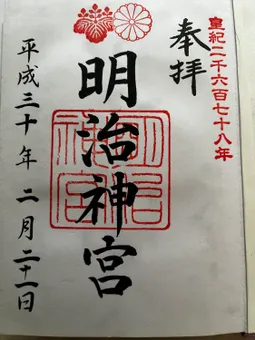 皇紀二千六百七十八年
奉拝
明治神宮
明治神宮
平成三十年二月二十一日